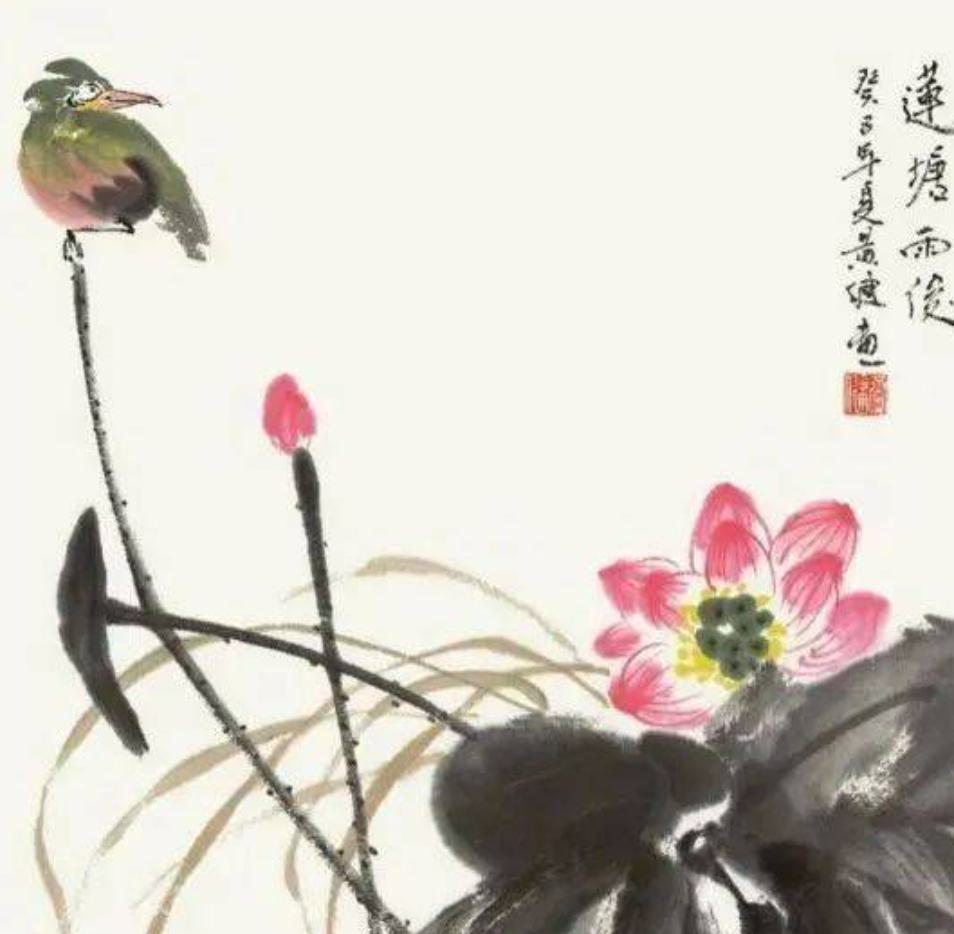 蓮塘雨後
癸巳年夏黃畫